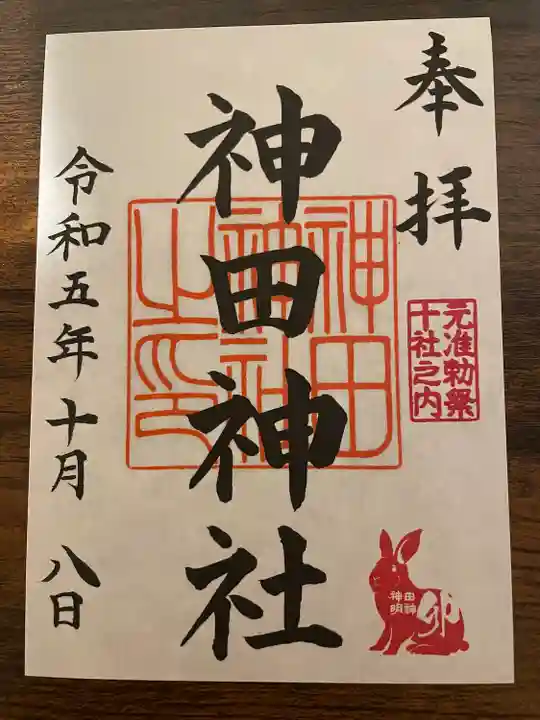 奉拝
元准勅祭
十社之内
神田神社
神田
神社
之印
令和五年十月八日
田神
神明
卯